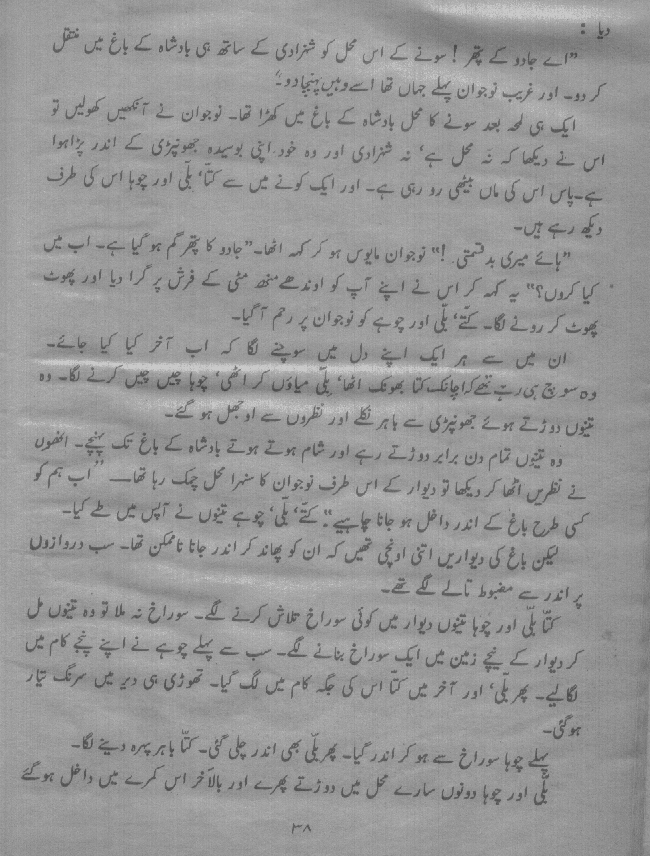 دیا :
”اے جادو کے پتھر! سونے کے اس محل کو شہزادی کے ساتھ ہی بادشاہ کے باغ میں منتقل
کر دو۔ اور غریب نوجوان پہلے جہاں تھا اسے وہیں پہنچا دو۔“
ایک ہی لمحہ بعد سونے کا محل بادشاہ کے باغ میں کھڑا تھا۔ نوجوان نے آنکھیں کھولیں تو
اس نے دیکھا کہ نہ محل ہے‘ نہ شہزادی اور وہ خود اپنی بوسیدہ جھونپڑی کے اندر پڑا ہوا
ہے۔ پاس اس کی ماں بیٹھی رو رہی ہے۔ اور ایک کونے میں سے کتّا‘ بلّی اور چوہا اس کی طرف
دیکھ رہے ہیں۔
”ہائے میری بدقسمتی !“ نوجوان مایوس ہو کر کہہ اٹھا۔ ”جادو کا پتھر گم ہو گیا ہے۔ اب میں
کیا کروں؟“ یہ کہہ کر اس نے اپنے آپ کو اوندھے منھ مٹی کے فرش پر گرا دیا اور پھوٹ
پھوٹ کر رونے لگا۔ کتّے‘ بلّی اور چوہے کو نوجوان پر رحم آگیا۔
ان میں سے ہر ایک اپنے دل میں سوچنے لگا کہ اب آخر کیا کیا جائے۔
وہ سوچ ہی رہے تھے کہ اچانک کتا بھونک اٹھا‘ بلّی میاؤں کر اٹھی‘ چوہا چیں چیں کرنے لگا۔ وہ
تینوں دوڑتے ہوئے جھونپڑی سے باہر نکلے اور نظروں سے اوجھل ہو گئے۔
وہ تینوں تمام دن برابر دوڑتے رہے اور شام ہوتے ہوتے بادشاہ کے باغ تک پہنچے۔ انھوں
نے نظریں اٹھا کر دیکھا تو دیوار کے اس طرف نوجوان کا سنہرا محل چمک رہا تھا—— ”اب ہم کو
کسی طرح باغ کے اندر داخل ہو جانا چاہیے“۔ کتّے‘ بلّی‘ چوہے تینوں نے آپس میں طے کیا۔
لیکن باغ کی دیواریں اتنی اونچی تھیں کہ ان کو پھاند کر اندر جانا ناممکن تھا۔ سب دروازوں
پر اندر سے مضبوط تالے لگے تھے۔
کتّا بلّی اور چوہا تینوں دیوار میں کوئی سوراخ تلاش کرنے لگے۔ سوراخ نہ ملا تو وہ تینوں مل
کر دیوار کے نیچے زمین میں ایک سوراخ بنانے لگے۔ سب سے پہلے چوہے نے اپنے پنجے کام میں
لگا لیے۔ پھر بلّی‘ اور آخر میں کتّا اس کی جگہ کام میں لگ گیا۔ تھوڑی ہی دیر میں سرنگ تیار
ہو گئی۔
پہلے چوہا سوراخ سے ہو کر اندر گیا۔ پھر بلّی بھی اندر چلی گئی۔ کتّا باہر پہرہ دینے لگا۔
بلّی اور چوہا دونوں سارے محل میں دوڑتے پھرے اور بالآخر اس کمرے میں داخل ہو گئے
۳۸